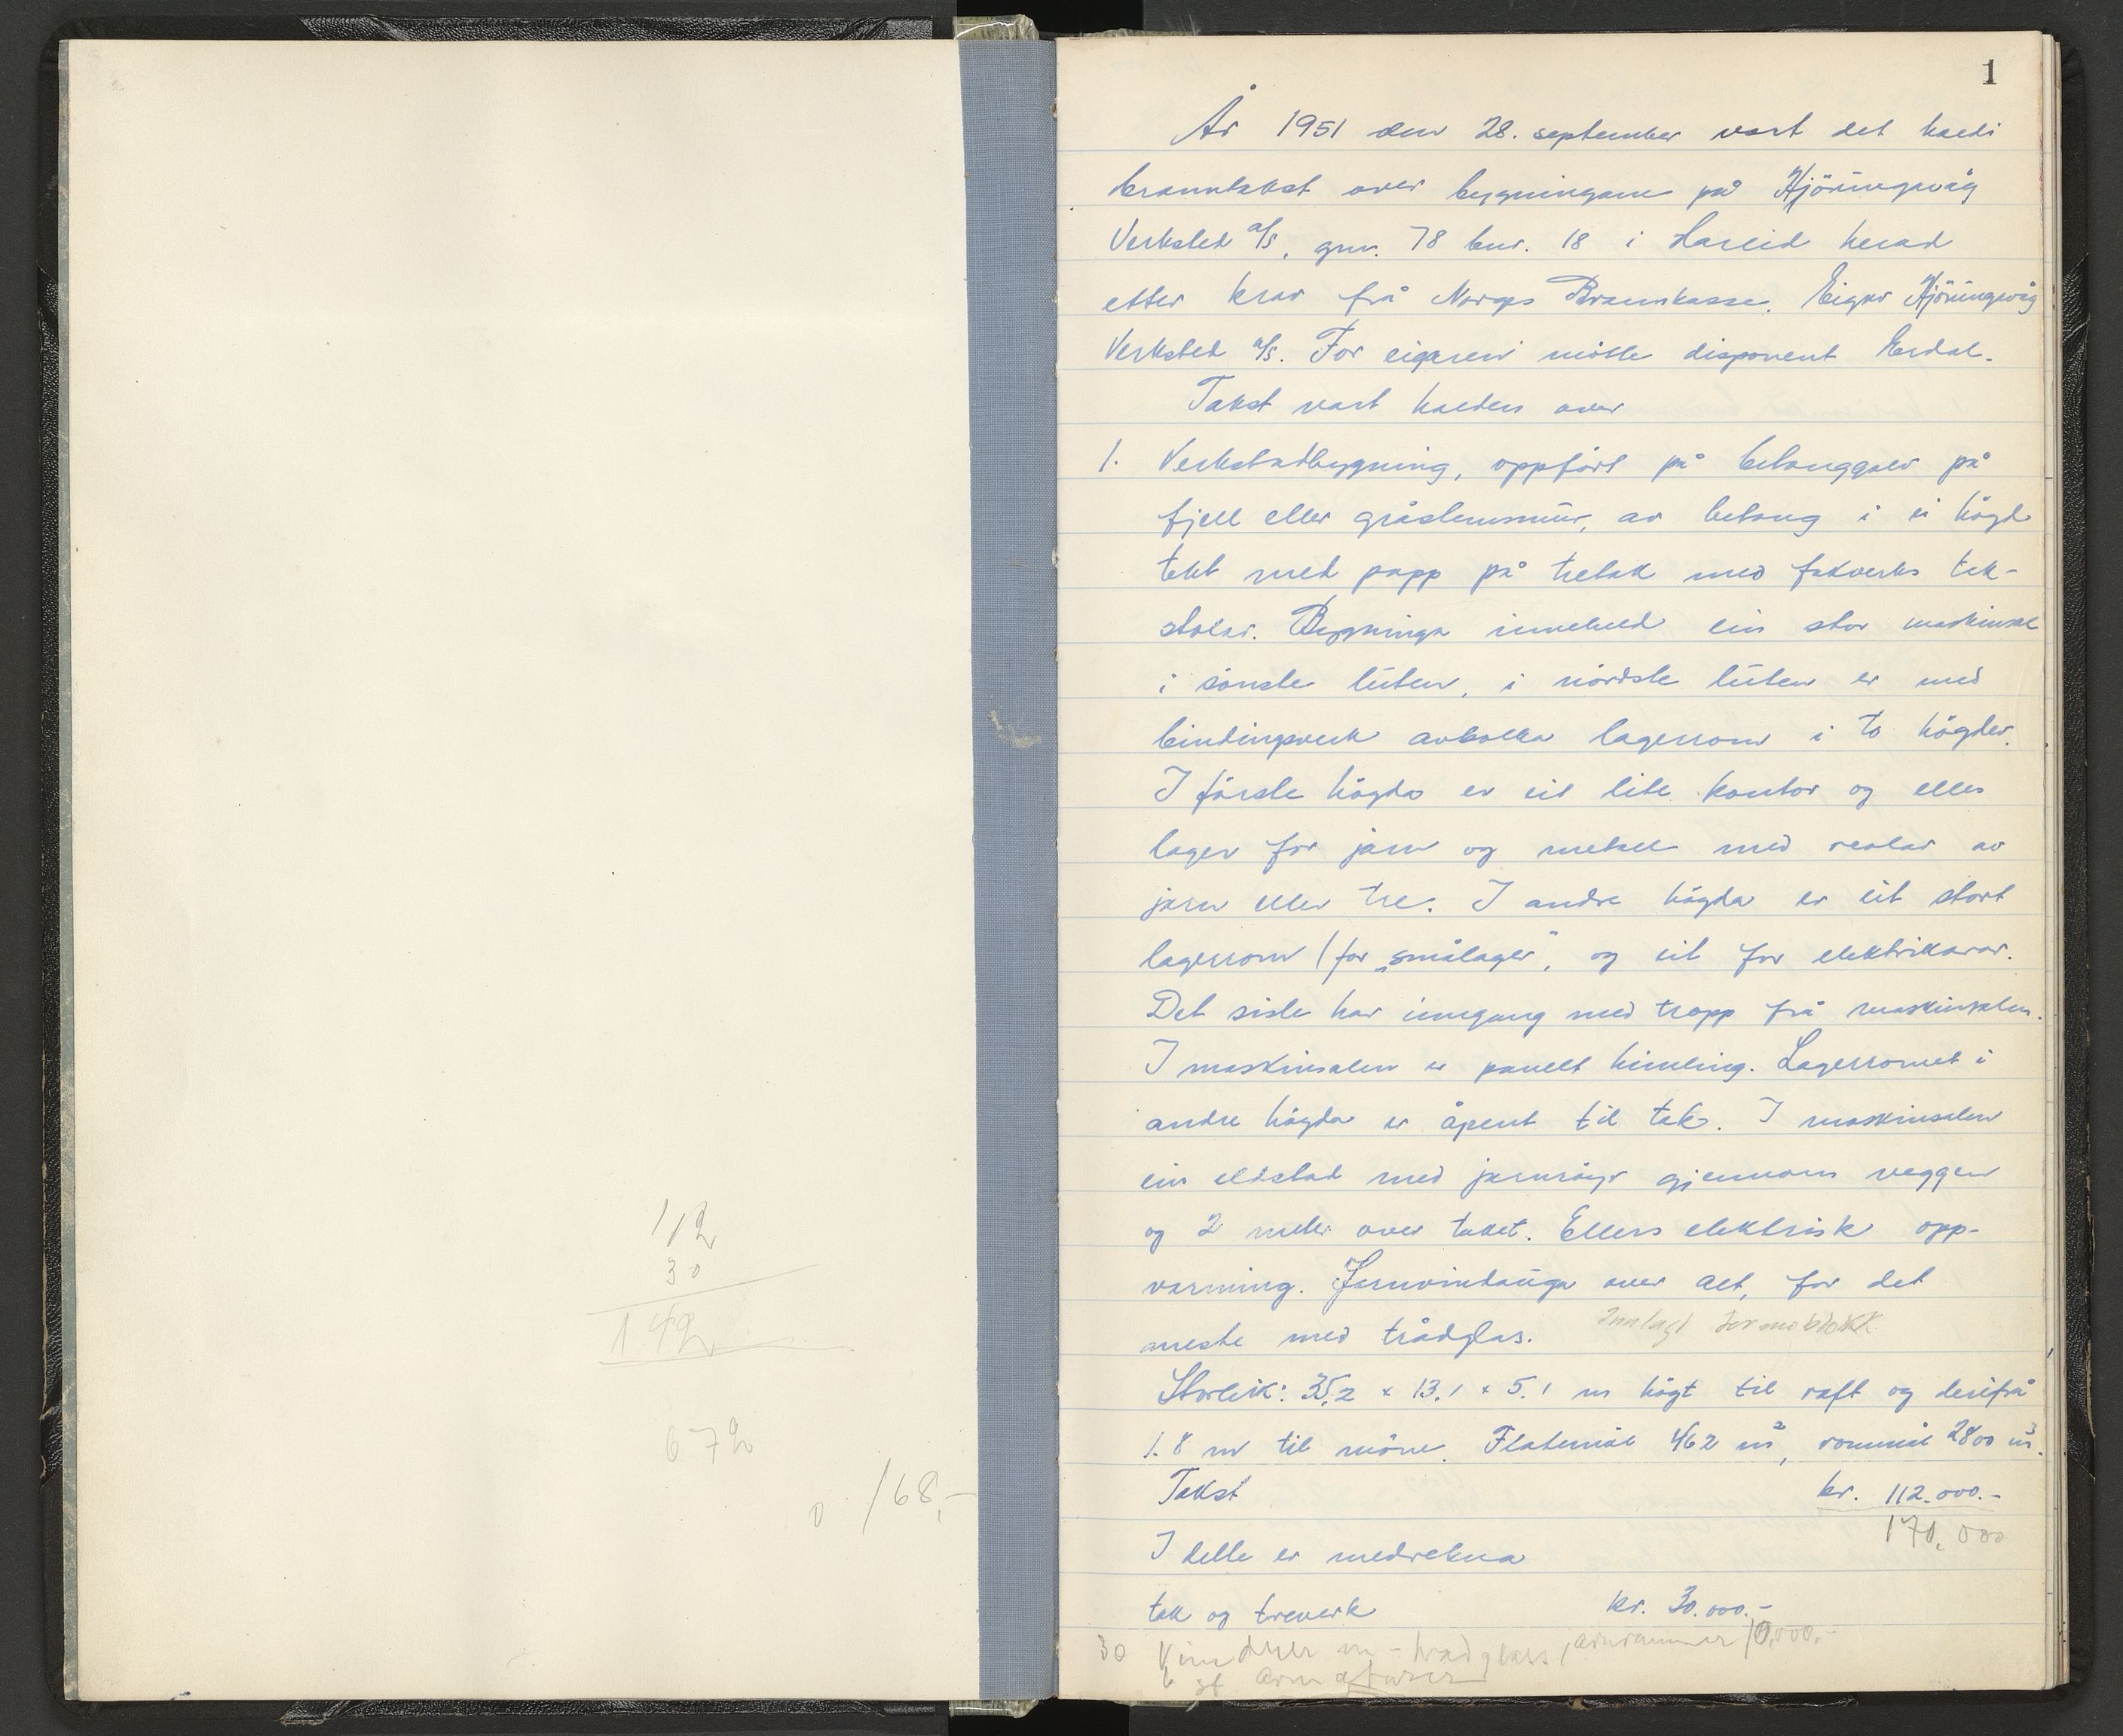 112
30
142
672
0 168,-
1
År 1951 den 28. september vart det haldi
branntakst over bygningane på Hjörungavåg
Verksted a/s, gnr. 78 bnr. 18 i Hareid herad
etter krav frå Norges Brannkasse. Eigar Hjörungavåg
Verksted a/s. For eigaren mötte disponent Erdal.
Takst vart halden over
1. Verkstadbygning, oppfört på betonggolv på
fjell eller gråsteinsmur, av betong i ei högd
tekt med papp på tretak med fakverks tak-
stolar. Bygninga inneheld ein stor maskinsal
i sönste luten, i nördste luten er med
bindingsverk avbolka lagerrom i to högder.
I förste högda er eit lite kontor og elles
lager for jarn og metall med reolar av
jarn eller tre. I andre högda er eit stort
lagerrom (for „smålager", og eit for elektrikarar.
Det siste har inngang med tropp frå maskinsalen.
I maskinsalen er panelt himling. Lagerromet i
andre högda er åpent til tak. I maskinsalen
ein eldstad med jarnröyr gjennom veggen
og 2 meter over taket. Ellers elektrisk opp-
varming. Jarnvindauga over alt, for det
meste med trådglas. Innlagt termoblokk
Storleik: 35,2 x 13,1 x 5.1 m högt til raft og derifrå
1.8 m til möne. Flatemål 462 m², rommål 2800 m³.
Takst kr. 112.000.-
170.000
I dette er medrekna
tak og treverk kr. 30.000.-
30 Vinduer m - trådglass, jarnrammer 10,000.-
6 st armaturer